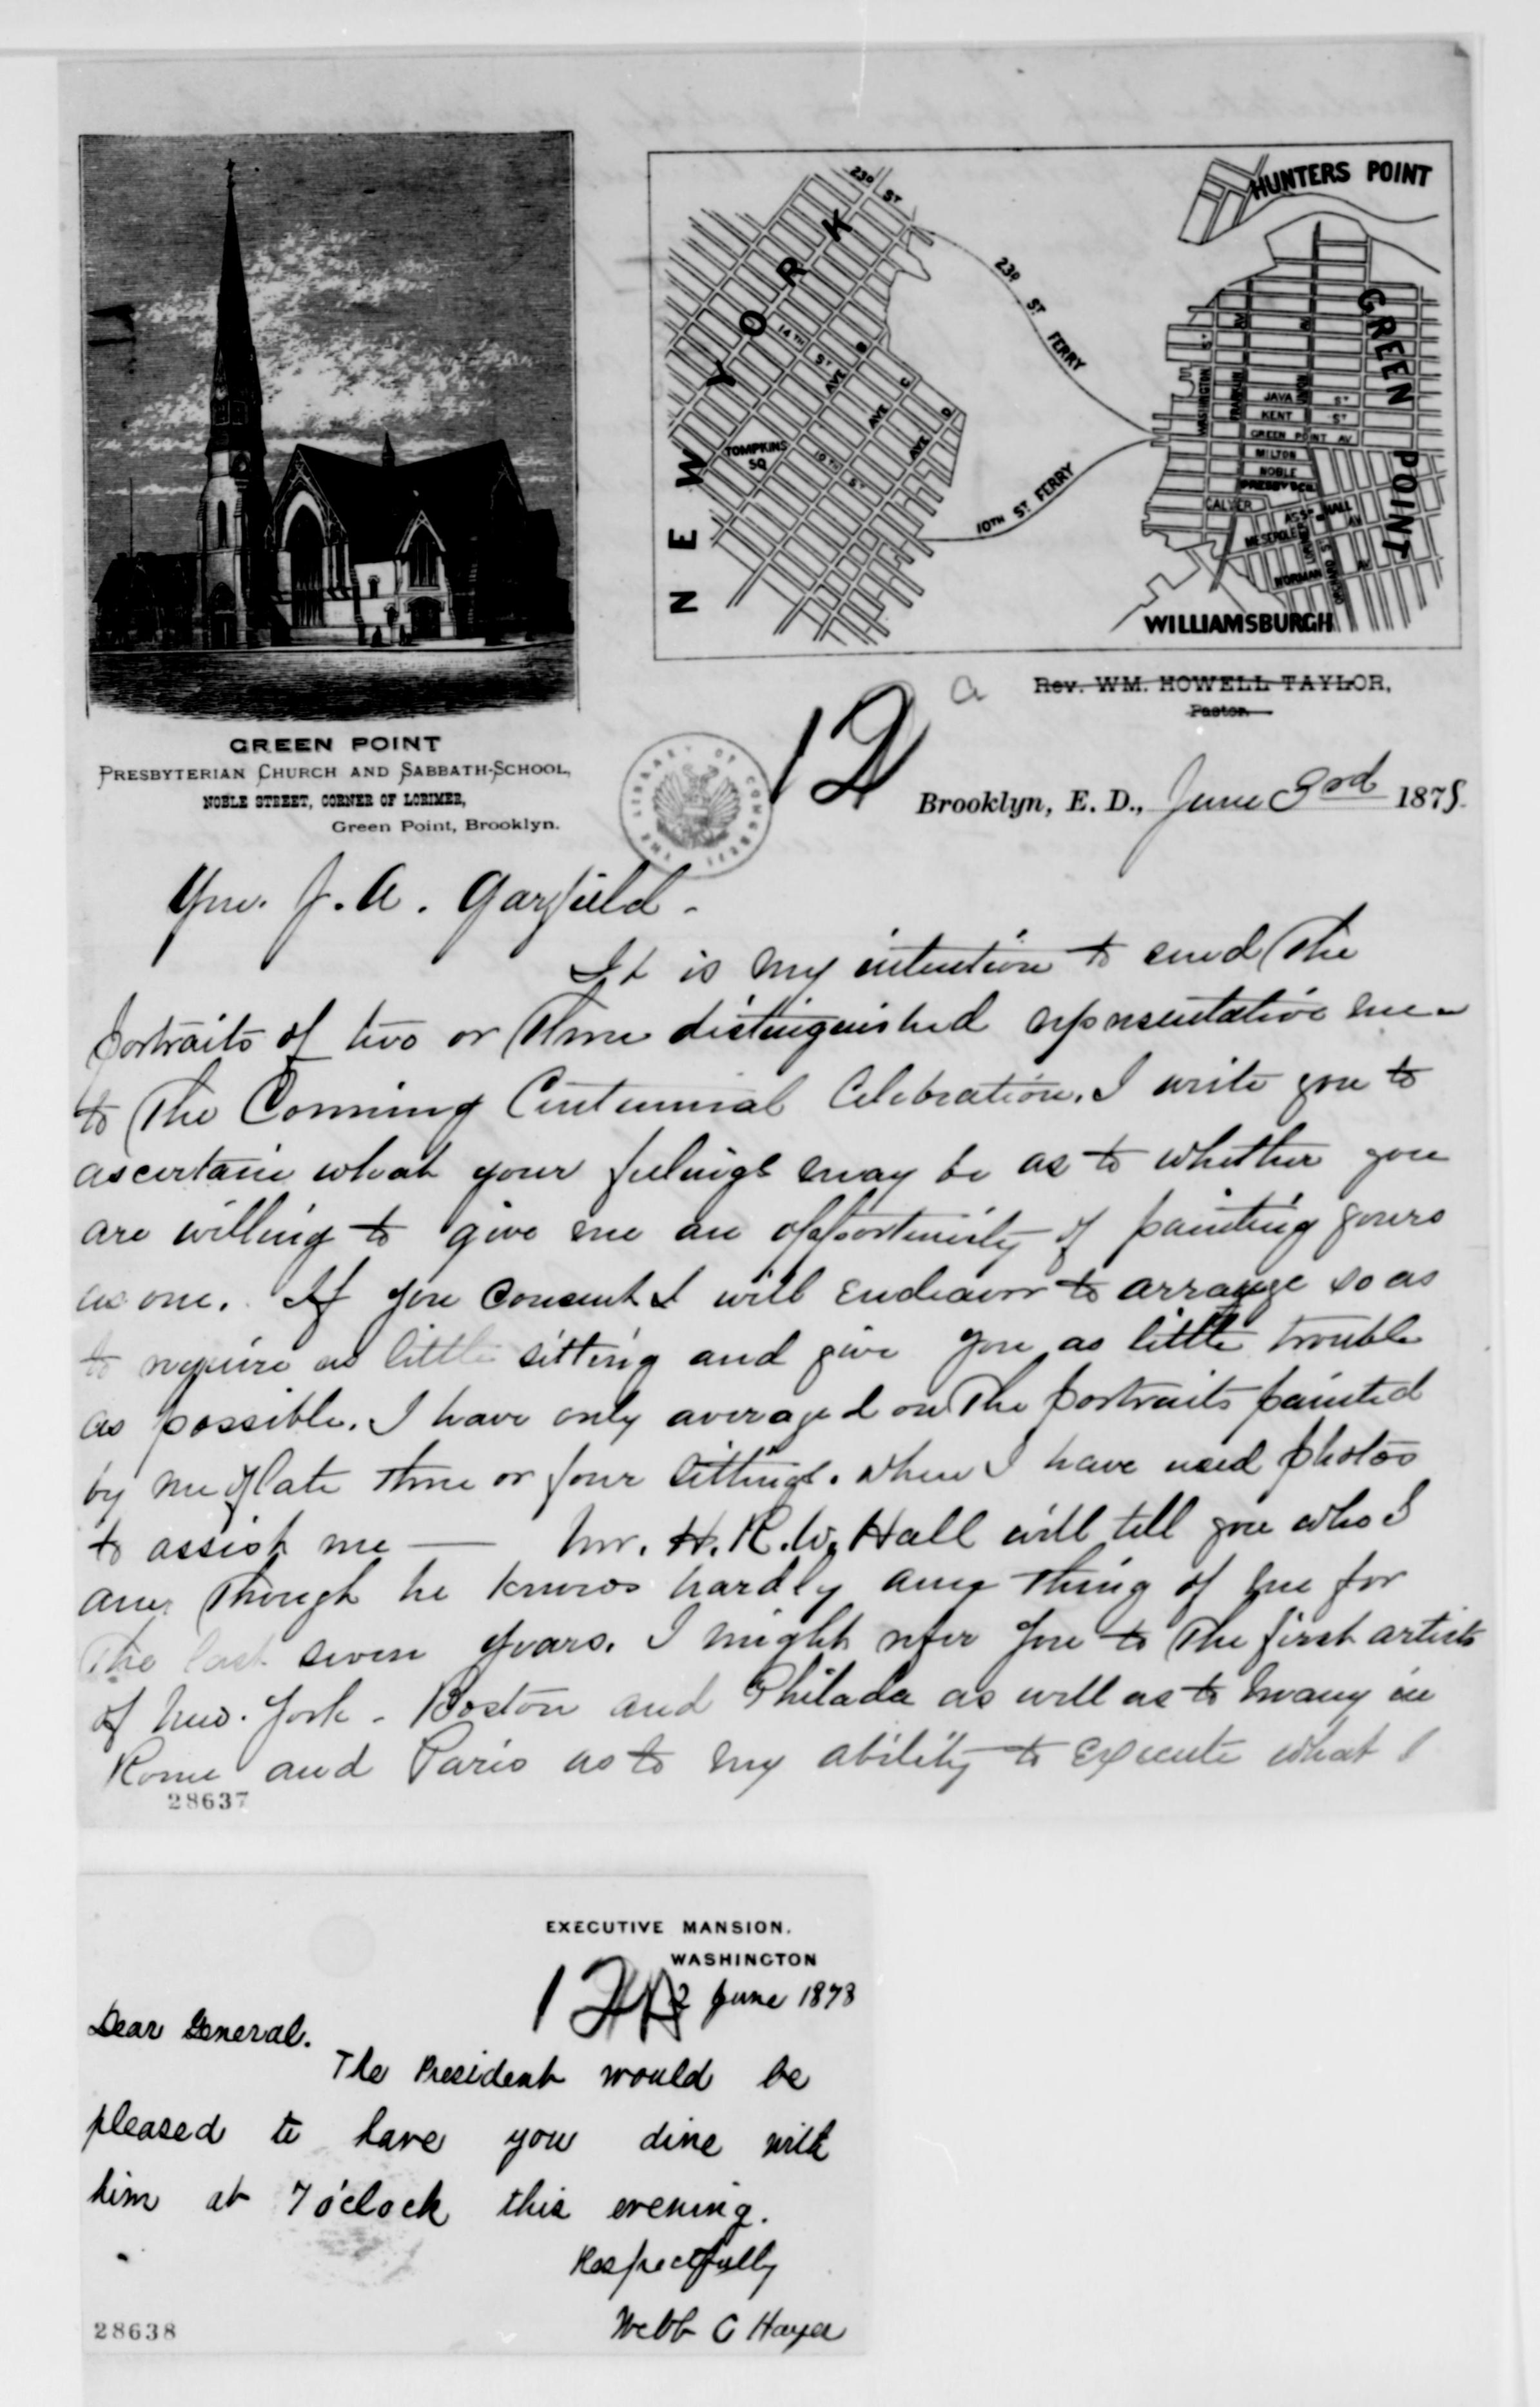 HUNTERS POINT
NEW YORK
23D ST
23D ST FERRY
14TH ST
AVE B
AVE C
AVE D
TOMPKINS SQ
10TH ST
10TH ST. FERRY
GREEN POINT
WASHINGTON ST
FRANKLIN
JAVA ST
KENT ST
GREEN POINT AV
MILTON
NOBLE
CALYER
MESEROLE AV
NORMAN AV
ORCHARD ST
WILLIAMSBURGH
Rev. WM. HOWELL TAYLOR,
Pastor.
GREEN POINT
PRESBYTERIAN CHURCH AND SABBATH-SCHOOL,
NOBLE STREET, CORNER OF LORIMER,
Green Point, Brooklyn.
THE LIBRARY OF CONGRESS
a
12
Brooklyn, E. D., June 3rd 1878.
Gen. J. A. Garfield -
It is my intention to send the
portraits of two or three distinguished representative men
to the Comming Centennial Celebration. I write you to
ascertain what your feelings may be as to whether you
are willing to give me an opportunity of painting yours
as one. If you consent I will endeavor to arrange so as
to require as little sitting and give you as little trouble
as possible. I have only averaged on the portraits painted
by me of late three or four sittings. when I have used photos
to assist me — Mr. H. R. W. Hall will tell you who I
am, though he knows hardly any thing of me for
the last seven years. I might refer you to the first artists
of New. York - Boston and Philada as well as to many in
Rome and Paris as to my ability to execute what I
28637
EXECUTIVE MANSION.
WASHINGTON
12 2 June 1878
Dear General.
The President would be
pleased to have you dine with
him at 7 o'clock this evening.
Respectfully
Webb C Hayes
28638